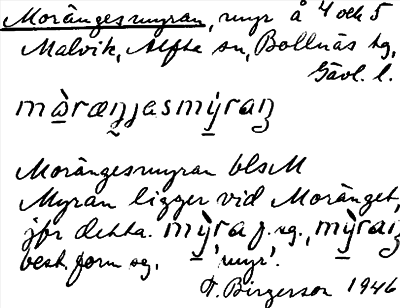 Morängesmyran, myr å 4 och 5
Malvik, Alfta sn, Bollnäs tg,
Gävl. l.
mὼ̲ræŋjasmỳ̲raŋ
Morängesmyran blsM
Myran ligger vid Moränget,
jfr detta. mỳ̲ra f. sg., mỳ̲raŋ
best. form sg. 'myr'.
F. Birgerson 1946